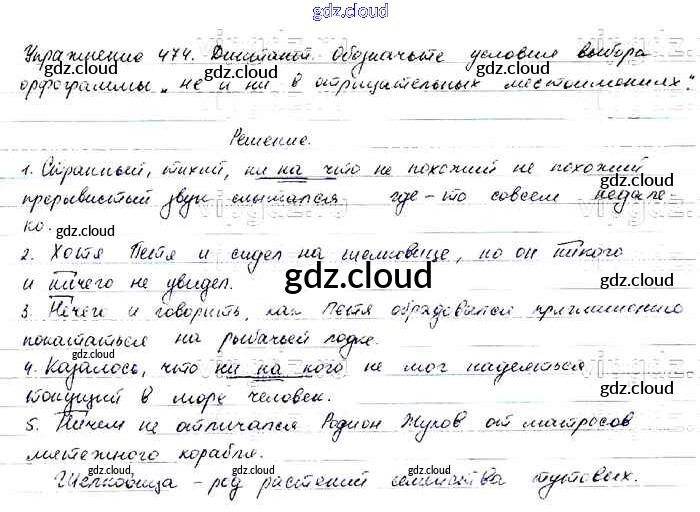 gdz.cloud
Упражнение 474. Диктант. Обозначьте условия выбора
орфограммы „не и ни в отрицательных местоимениях".
Решение.
1. Странный, тихий, ни на что не похожий не похожий
прерывистый звук слышался где-то совсем недале
ко.
2. Хотя Петя и сидел на шелковице, но он никого
и ничего не увидел.
3. Нечего и говорить, как Петя обрадовался приглашению
покататься на рыбачьей лодке.
4. Казалось, что ни на кого не мог надеяться
тонущий в море человек.
5. Ничем не отличался Родион Жуков от матросов
мятежного корабля.
Шелковица - род растений семейства тутовых.